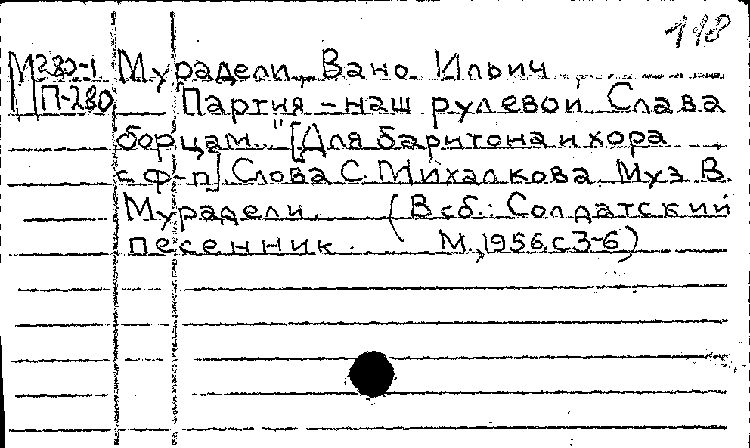 118
М280-1 Мурадели, Вано Ильич
П-280 Партия – наш рулевой. Слава
борцам..." [Для баритона и хора
с ф-п]. Слова С. Михалкова. Муз. В.
Мурадели. (В сб.: Солдатский
песенник. М., 1956, с 3-6)